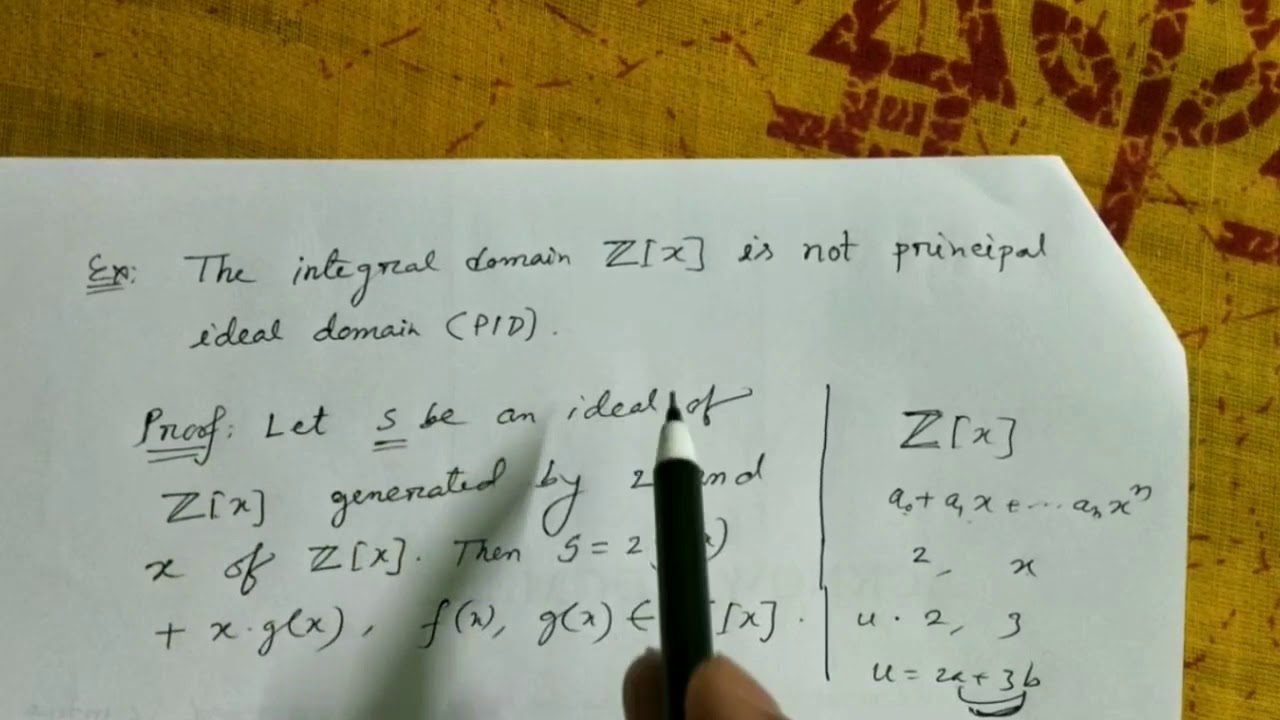 Ex: The integral domain ℤ[x] is not principal
ideal domain (PID).
Proof: Let S be an ideal of
ℤ[x] generated by 2
x of ℤ[x]. Then S = 2
+ x·g(x), f(x), g(x) ∈ [x].
ℤ[x]
a₀ + a₁x + ... aₙxⁿ
2, x
u · 2, 3
u = 2a + 3b